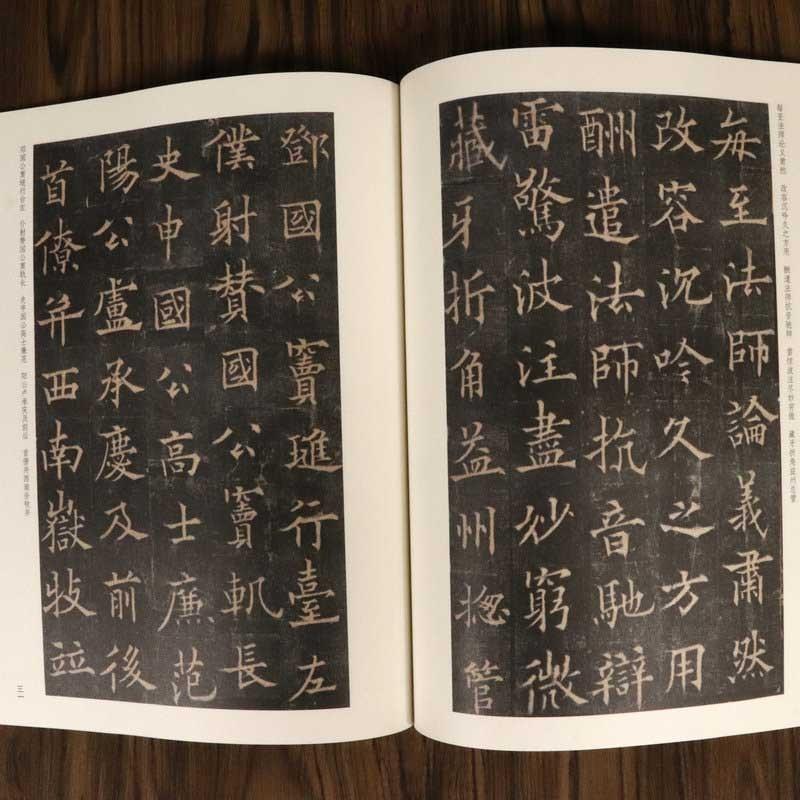 每至法师论义肃然 改容沉吟久之方用 酬遣法师抗音驰辩 雷惊波注尽妙穷微 藏牙折角益州总管
每至法師論義肅然
改容沉吟久之方用
酬遣法師抗音馳辯
雷驚波注盡妙窮微
藏牙折角益州揔管
鄧國公竇璡行臺左
僕射贊國公竇軌長
史申國公高士廉范
陽公盧承慶及前後
首僚并西南嶽牧並
邓国公窦琎行台左 仆射赞国公窦轨长 史申国公高士廉范 阳公卢承庆及前后 首僚并西南岳牧并
三一